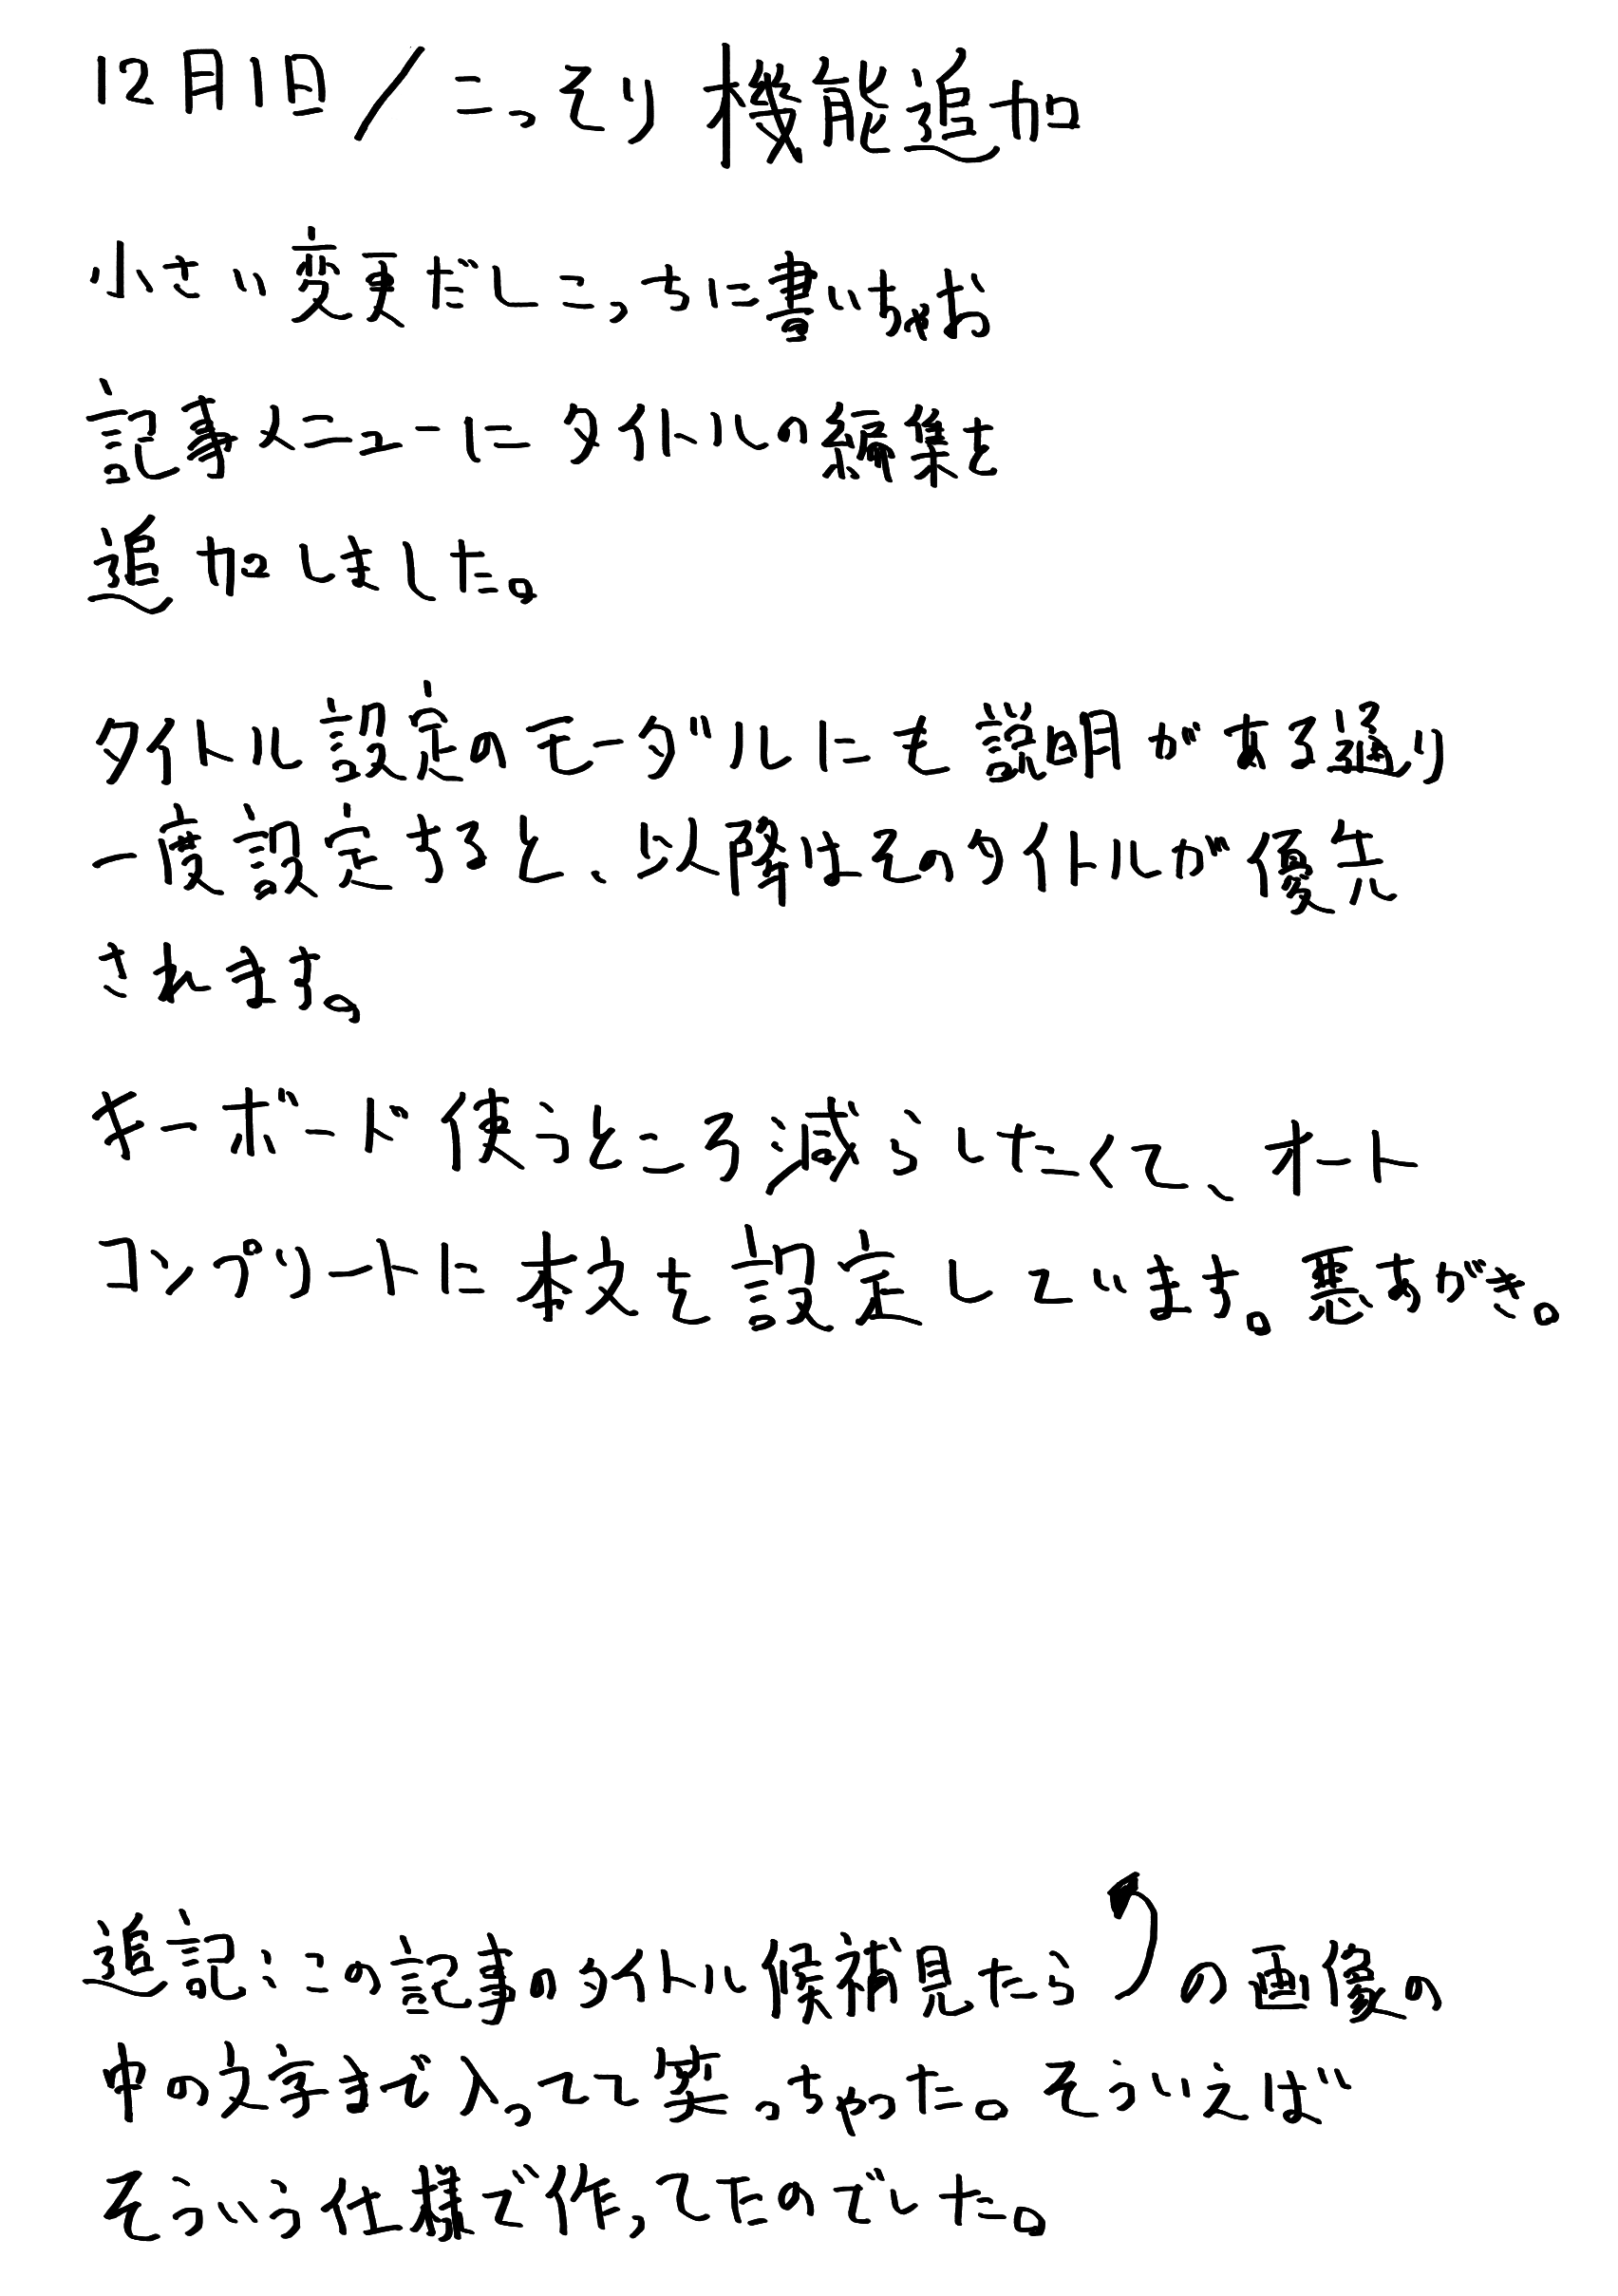 12月1日/こっそり機能追加
小さい変更だしこっちに書いちゃお
記事メニューにタイトルの編集を
追加しました。
タイトル設定のモーダルにも説明がある通り
一度設定すると、以降はそのタイトルが優先
されます。
キーボード使うところ減らしたくて、オート
コンプリートに本文を設定しています。悪あがき。
追記:この記事のタイトル候補見たら↰の画像の
中の文字まで入ってて笑っちゃった。そういえば
そういう仕様で作ってたのでした。